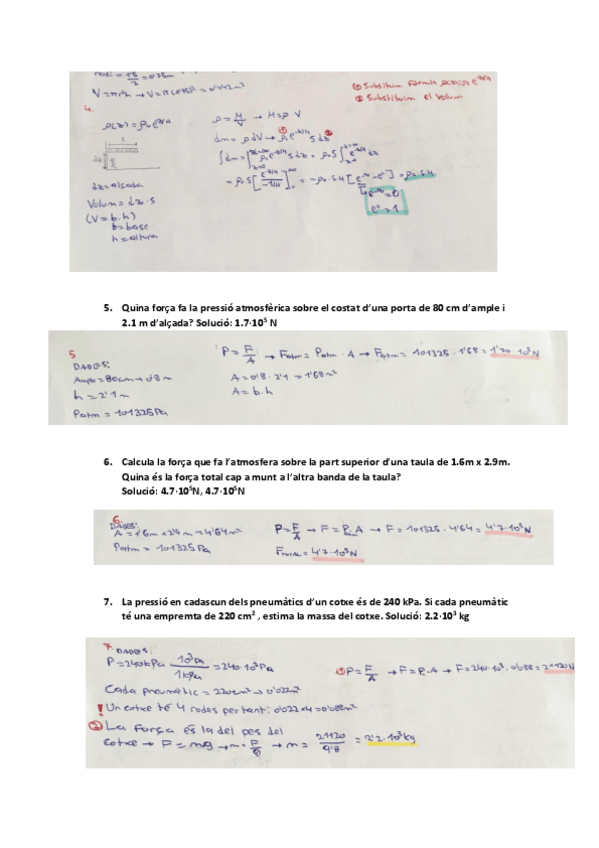 radi = 1'5/2 = 0'75m
V = πr²h → V =
① Substituim fórmula
② Substituim el volum
4.
ρ(z) = ρ₀e^-z/H
ρ = M/V → M = ρ·V
dm = ρ dV → ρ₀e^-z/H S dz
dz = alçada
Volum = dz·S
(V = b·h)
b = base
h = altura
e^-∞ = 0
e⁰ = 1
5. Quina força fa la pressió atmosfèrica sobre el costat d'una porta de 80 cm d'ample i
2.1 m d'alçada? Solució: 1.7·10⁵ N
5
DADES:
Ample = 80cm → 0'8m
h = 2'1m
Patm = 101325 Pa
P = F/A → Fatm = Patm · A → Fatm = 101325 · 1'68 = 1'70·10⁵N
A = 0'8 · 2'1 = 1'68m²
A = b·h
6. Calcula la força que fa l'atmosfera sobre la part superior d'una taula de 1.6m x 2.9m.
Quina és la força total cap a munt a l'altra banda de la taula?
Solució: 4.7·10⁵N, 4.7·10⁵N
6.
DADES:
A = 1'6m x 2'9m = 4'64m²
Patm = 101325 Pa
P = F/A → F = P·A → F = 101325 · 4'64 = 4'7·10⁵N
FTOTAL = 4'7·10⁵N
7. La pressió en cadascun dels pneumàtics d'un cotxe és de 240 kPa. Si cada pneumàtic
té una empremta de 220 cm² , estima la massa del cotxe. Solució: 2.2·10³ kg
7.
DADES:
P = 240kPa 10³Pa/1kPa = 240·10³Pa
① P = F/A → F = P·A → F = 240·10³ · 0'088 = 21120N
Cada pneumàtic = 220cm² → 0'022m²
! Un cotxe té 4 rodes per tant: 0'022 x 4 = 0'088m²
② La força és la del pes del
cotxe → F = mg → m = F/g → m = 21120/9'8 = 2'2·10³kg